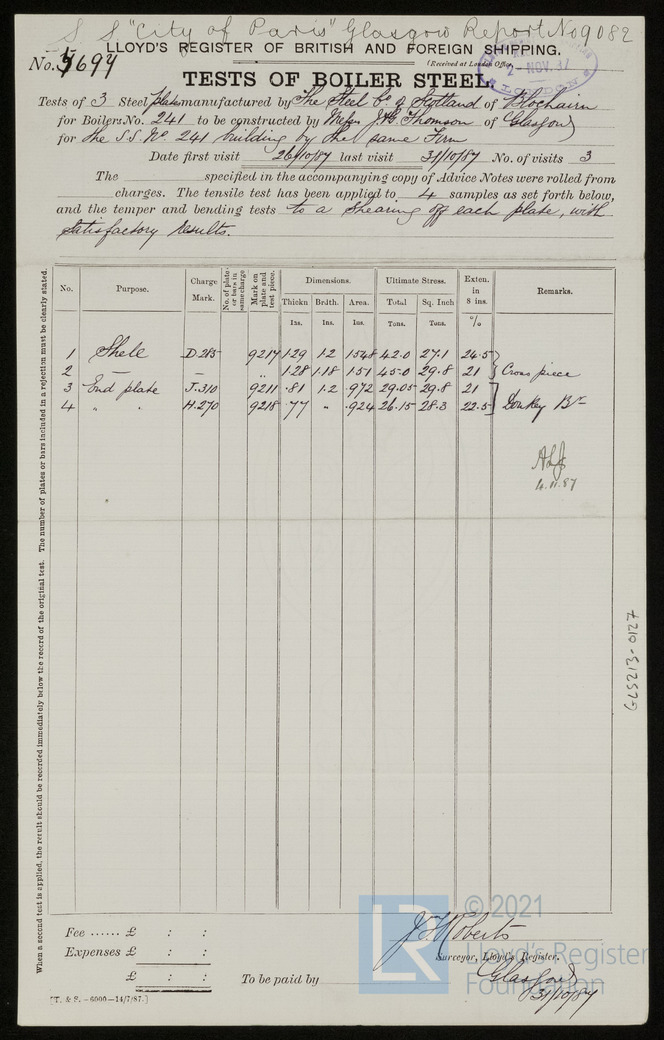 S. S. "City of Paris" Glasgow Report No 9082
LLOYD'S REGISTER OF BRITISH AND FOREIGN SHIPPING.
No. 5694
(Received at London Office,
2-NOV.87
TESTS OF BOILER STEEL.
Tests of 3 Steel plates manufactured by The Steel Co of Scotland of Blochairn
for Boilers No. 241 to be constructed by Messrs J. & G. Thomson of Glasgow
for the S.S. No. 241 building by the same Firm
Date first visit 26/10/87 last visit 31/10/87 No. of visits 3
The specified in the accompanying copy of Advice Notes were rolled from
charges. The tensile test has been applied to 4 samples as set forth below,
and the temper and bending tests to a shearing off each plate, with
satisfactory results.
When a second test is applied, the result should be recorded immediately below the record of the original test. The number of plates or bars included in a rejection must be clearly stated.
No. Purpose. Charge Mark. No. of plates or bars in same charge Mark on plate and test piece. Dimensions. Ultimate Stress. Exten. in 8 ins. Remarks.
Thickn Brdth. Area. Total Sq. Inch
Ins. Ins. Ins. Tons. Tons. %
1 Shell D.215 9217 1.29 1.2 1.548 42.0 27.1 24.5
2 — — „ 1.28 1.18 1.51 45.0 29.8 21 } Cross piece
3 End plate J.310 9211 .81 1.2 .972 29.05 29.8 21
4 „ „ H.270 9218 .77 „ .924 26.15 28.3 22.5 } Donkey Br
4.11.87
GLS213-0127
Fee ...... £ : :
Expenses £ : :
£ : :
To be paid by
J. T. Roberts
Surveyor, Lloyd's Register.
Glasgow
31/10/87
[T. & S. - 6000 - 14/7/87.]
LR
© 2021
Lloyd's Register
Foundation